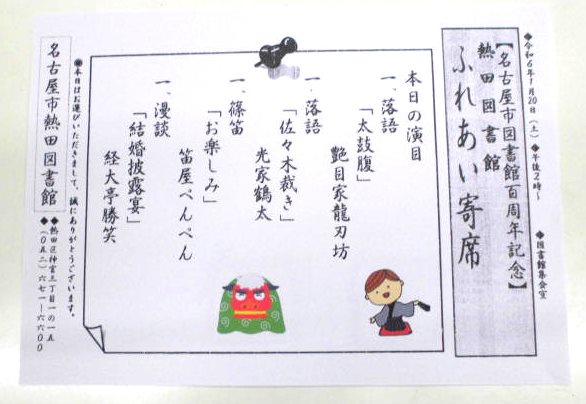 ◆令和6年1月20日（土）◆午後2時～　◆図書館集会室
【名古屋市図書館百周年記念】
熱田図書館
ふれあい寄席
本日の演目
一、落語
「太鼓腹」
艶目家龍刃坊
一、落語
「佐々木裁き」
光家鶴太
一、篠笛
「お楽しみ」
笛屋ぺんぺん
一、漫談
「結婚披露宴」
経大亭勝笑
◆本日はお運びいただきまして、誠にありがとうございます。
名古屋市熱田図書館
◆熱田区神宮三丁目一の一五
◆（〇五二）六七一―六六〇〇